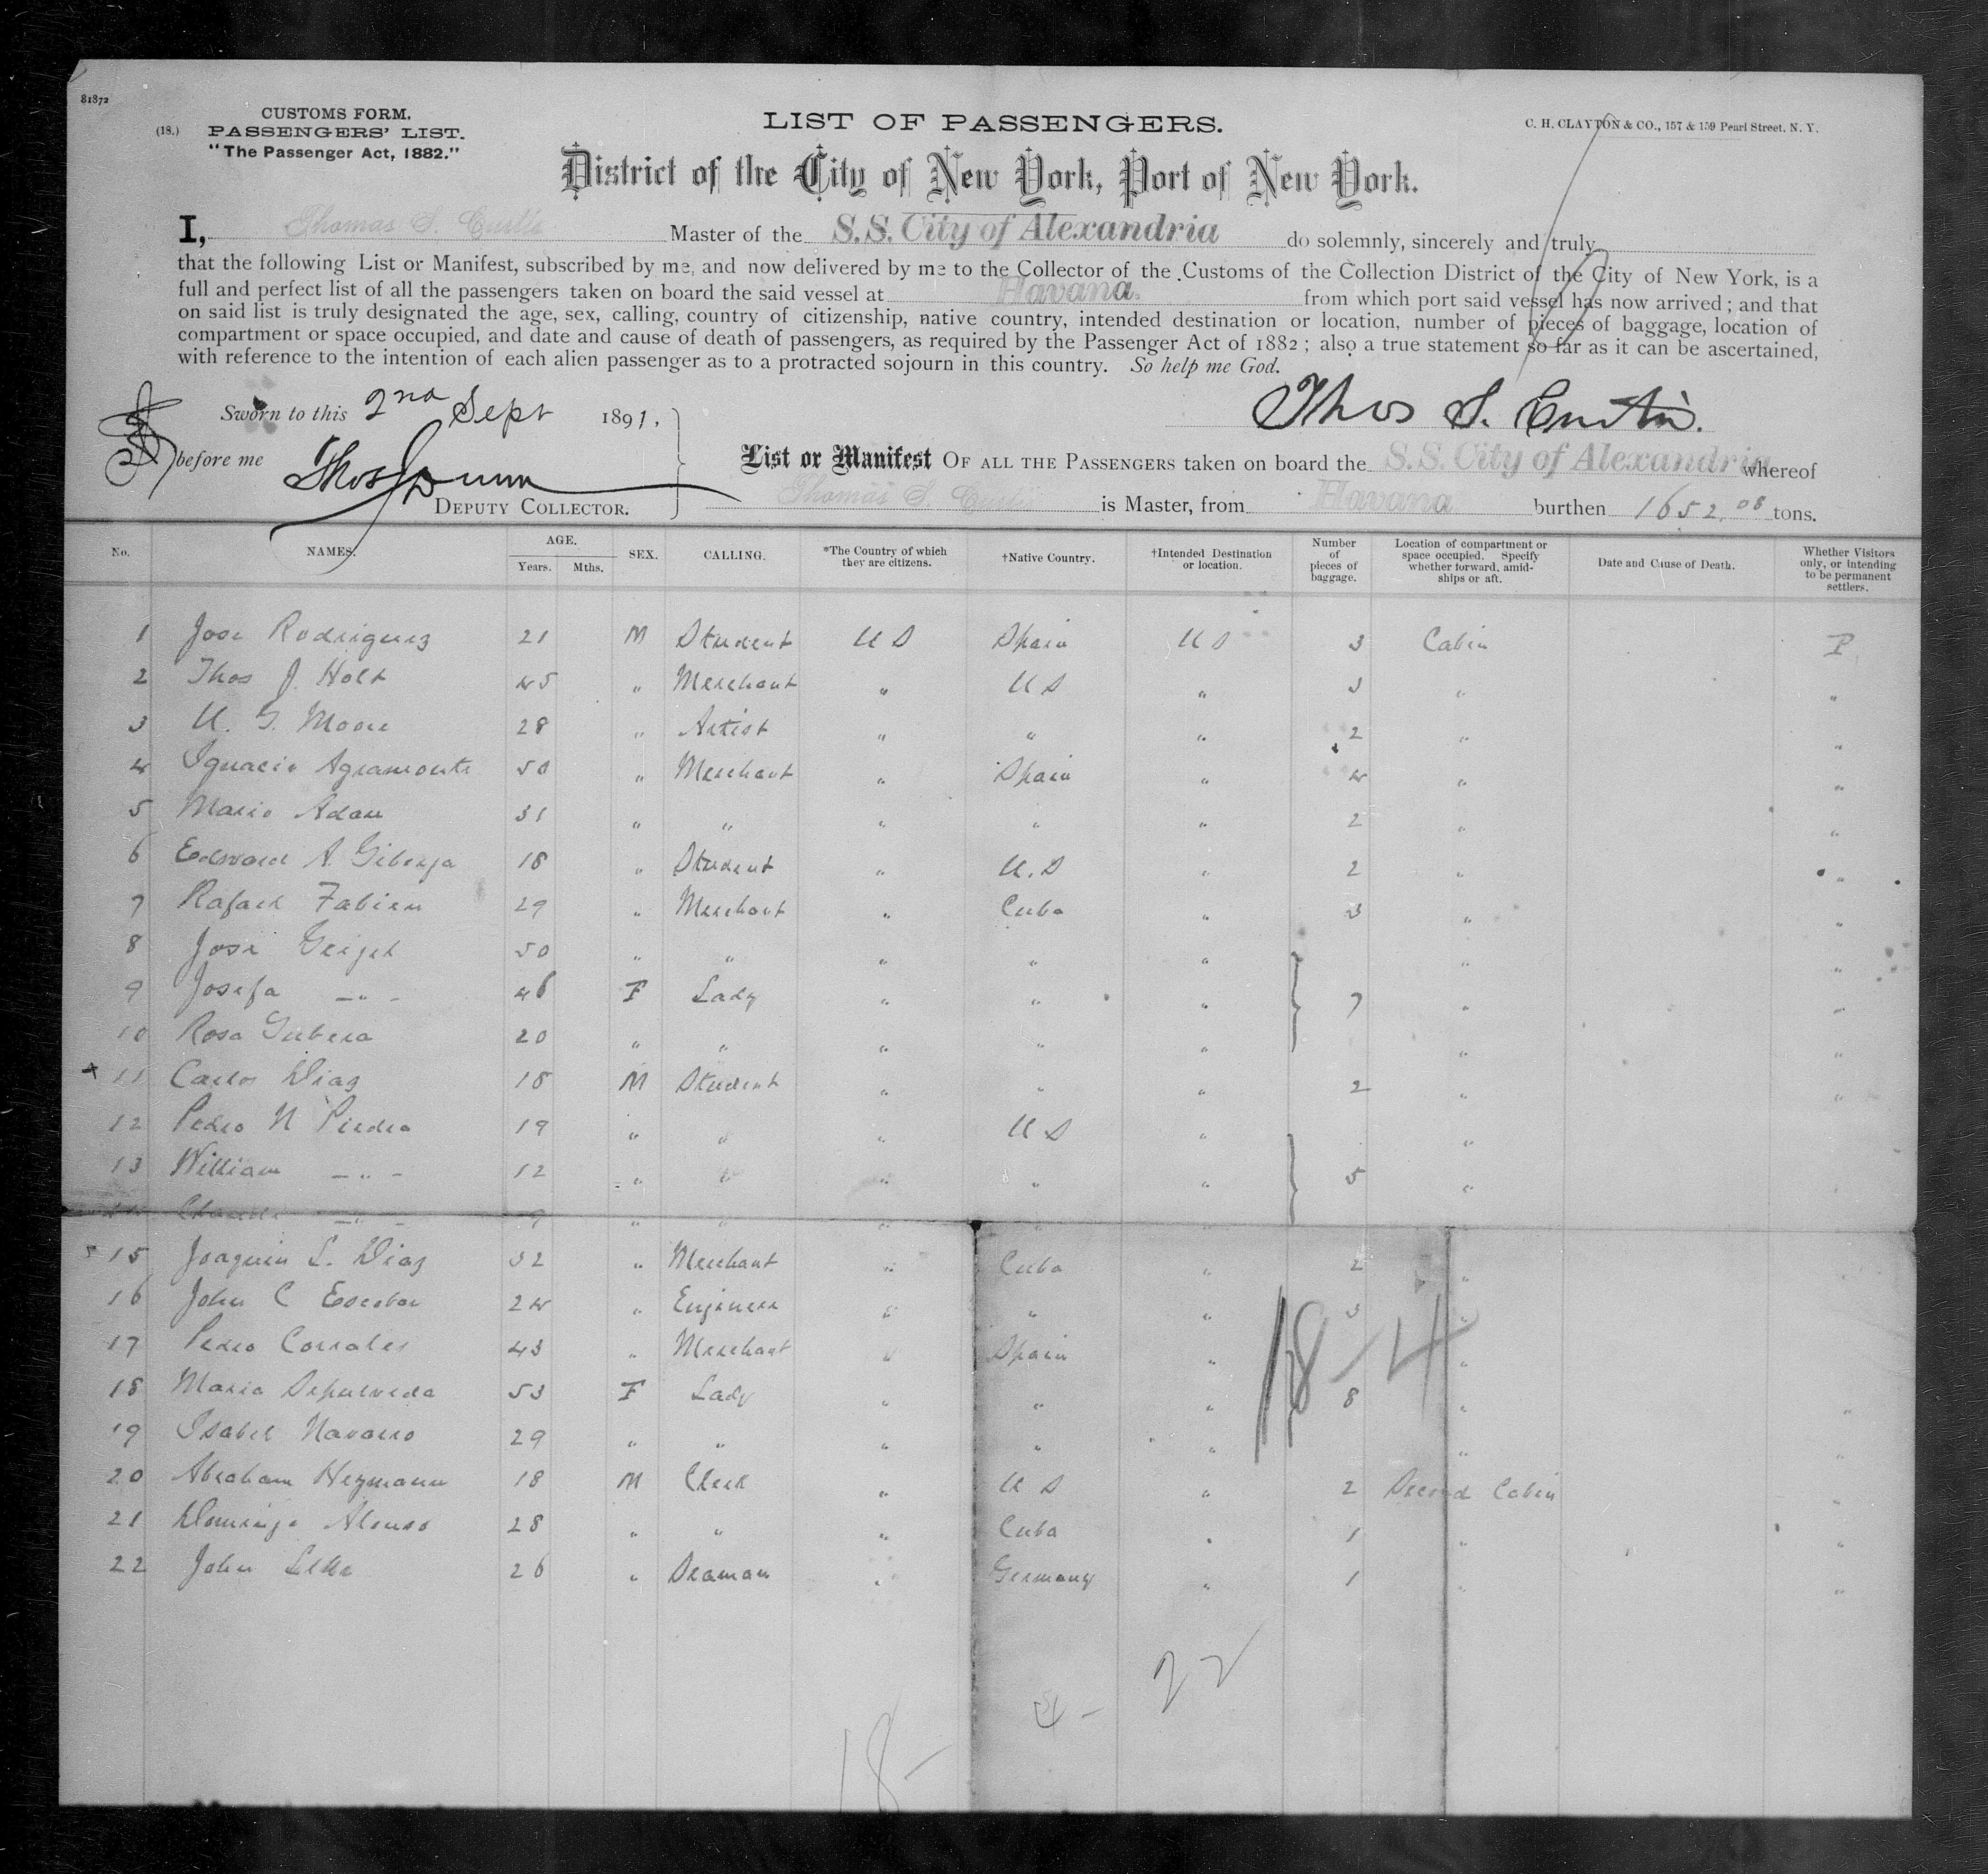 81872
CUSTOMS FORM.
(18.) PASSENGERS' LIST.
"The Passenger Act, 1882."
LIST OF PASSENGERS.
C. H. CLAYTON & CO., 157 & 159 Pearl Street, N. Y.
District of the City of New York, Port of New York.
I, Thomas S. Curtis Master of the S.S. City of Alexandria do solemnly, sincerely and truly
that the following List or Manifest, subscribed by me, and now delivered by me to the Collector of the Customs of the Collection District of the City of New York, is a
full and perfect list of all the passengers taken on board the said vessel at Havana. from which port said vessel has now arrived; and that
on said list is truly designated the age, sex, calling, country of citizenship, native country, intended destination or location, number of pieces of baggage, location of
compartment or space occupied, and date and cause of death of passengers, as required by the Passenger Act of 1882; also a true statement so far as it can be ascertained,
with reference to the intention of each alien passenger as to a protracted sojourn in this country. So help me God.
Sworn to this 2nd Sept 1891,
Thos S. Curtis.
before me Thos Dunn
DEPUTY COLLECTOR.
List or Manifest OF ALL THE PASSENGERS taken on board the S.S. City of Alexandria whereof
Thomas S. Curtis is Master, from Havana burthen 1652.08 tons.
No. NAMES. AGE. Years. Mths. SEX. CALLING. *The Country of which they are citizens. †Native Country. †Intended Destination or location. Number of pieces of baggage. Location of compartment or space occupied. Specify whether forward, amidships or aft. Date and Cause of Death. Whether Visitors only, or intending to be permanent settlers.
1 Jose Rodriguez 21 M Student U S Spain U S 3 Cabin P
2 Thos J. Holt 45 " Merchant " U S " 3 " "
3 U. G. Moore 28 " Artist " " " 2 " "
4 Ignacio Agramonte 50 " Merchant " Spain " 4 " "
5 Mario Adan 31 " " " " " 2 " "
6 Edward A. Giberga 18 " Student " U.S " 2 " "
7 Rafael Fabian 29 " Merchant " Cuba " 3 " "
8 Jose Geigel 50 " " " " " " "
9 Josefa —"— 46 F Lady " " " 7 " "
10 Rosa 20 " " " " " " "
11 Carlos Diaz 18 M Student " " " 2 " "
12 Pedro N Piedra 19 " " " U S " "
13 William —"— 12 " " " " " 5 "
—"— 9 " " " "
15 Joaquin L. Diaz 32 " Merchant " Cuba " 2 "
16 John C Escobar 24 " Engineer " " " 3 "
17 Pedro Corrales 43 " Merchant " Spain " "
18 Maria Sepulveda 53 F Lady " " " 8 " "
19 Isabel Navarro 29 " " " " " " "
20 Abraham Heymann 18 M Clerk " U S " 2 Second Cabin "
21 Domingo Alonso 28 " " " Cuba " 1 " "
22 John 26 " Seaman " Germany " 1 " "
18-4
22
4-
18-